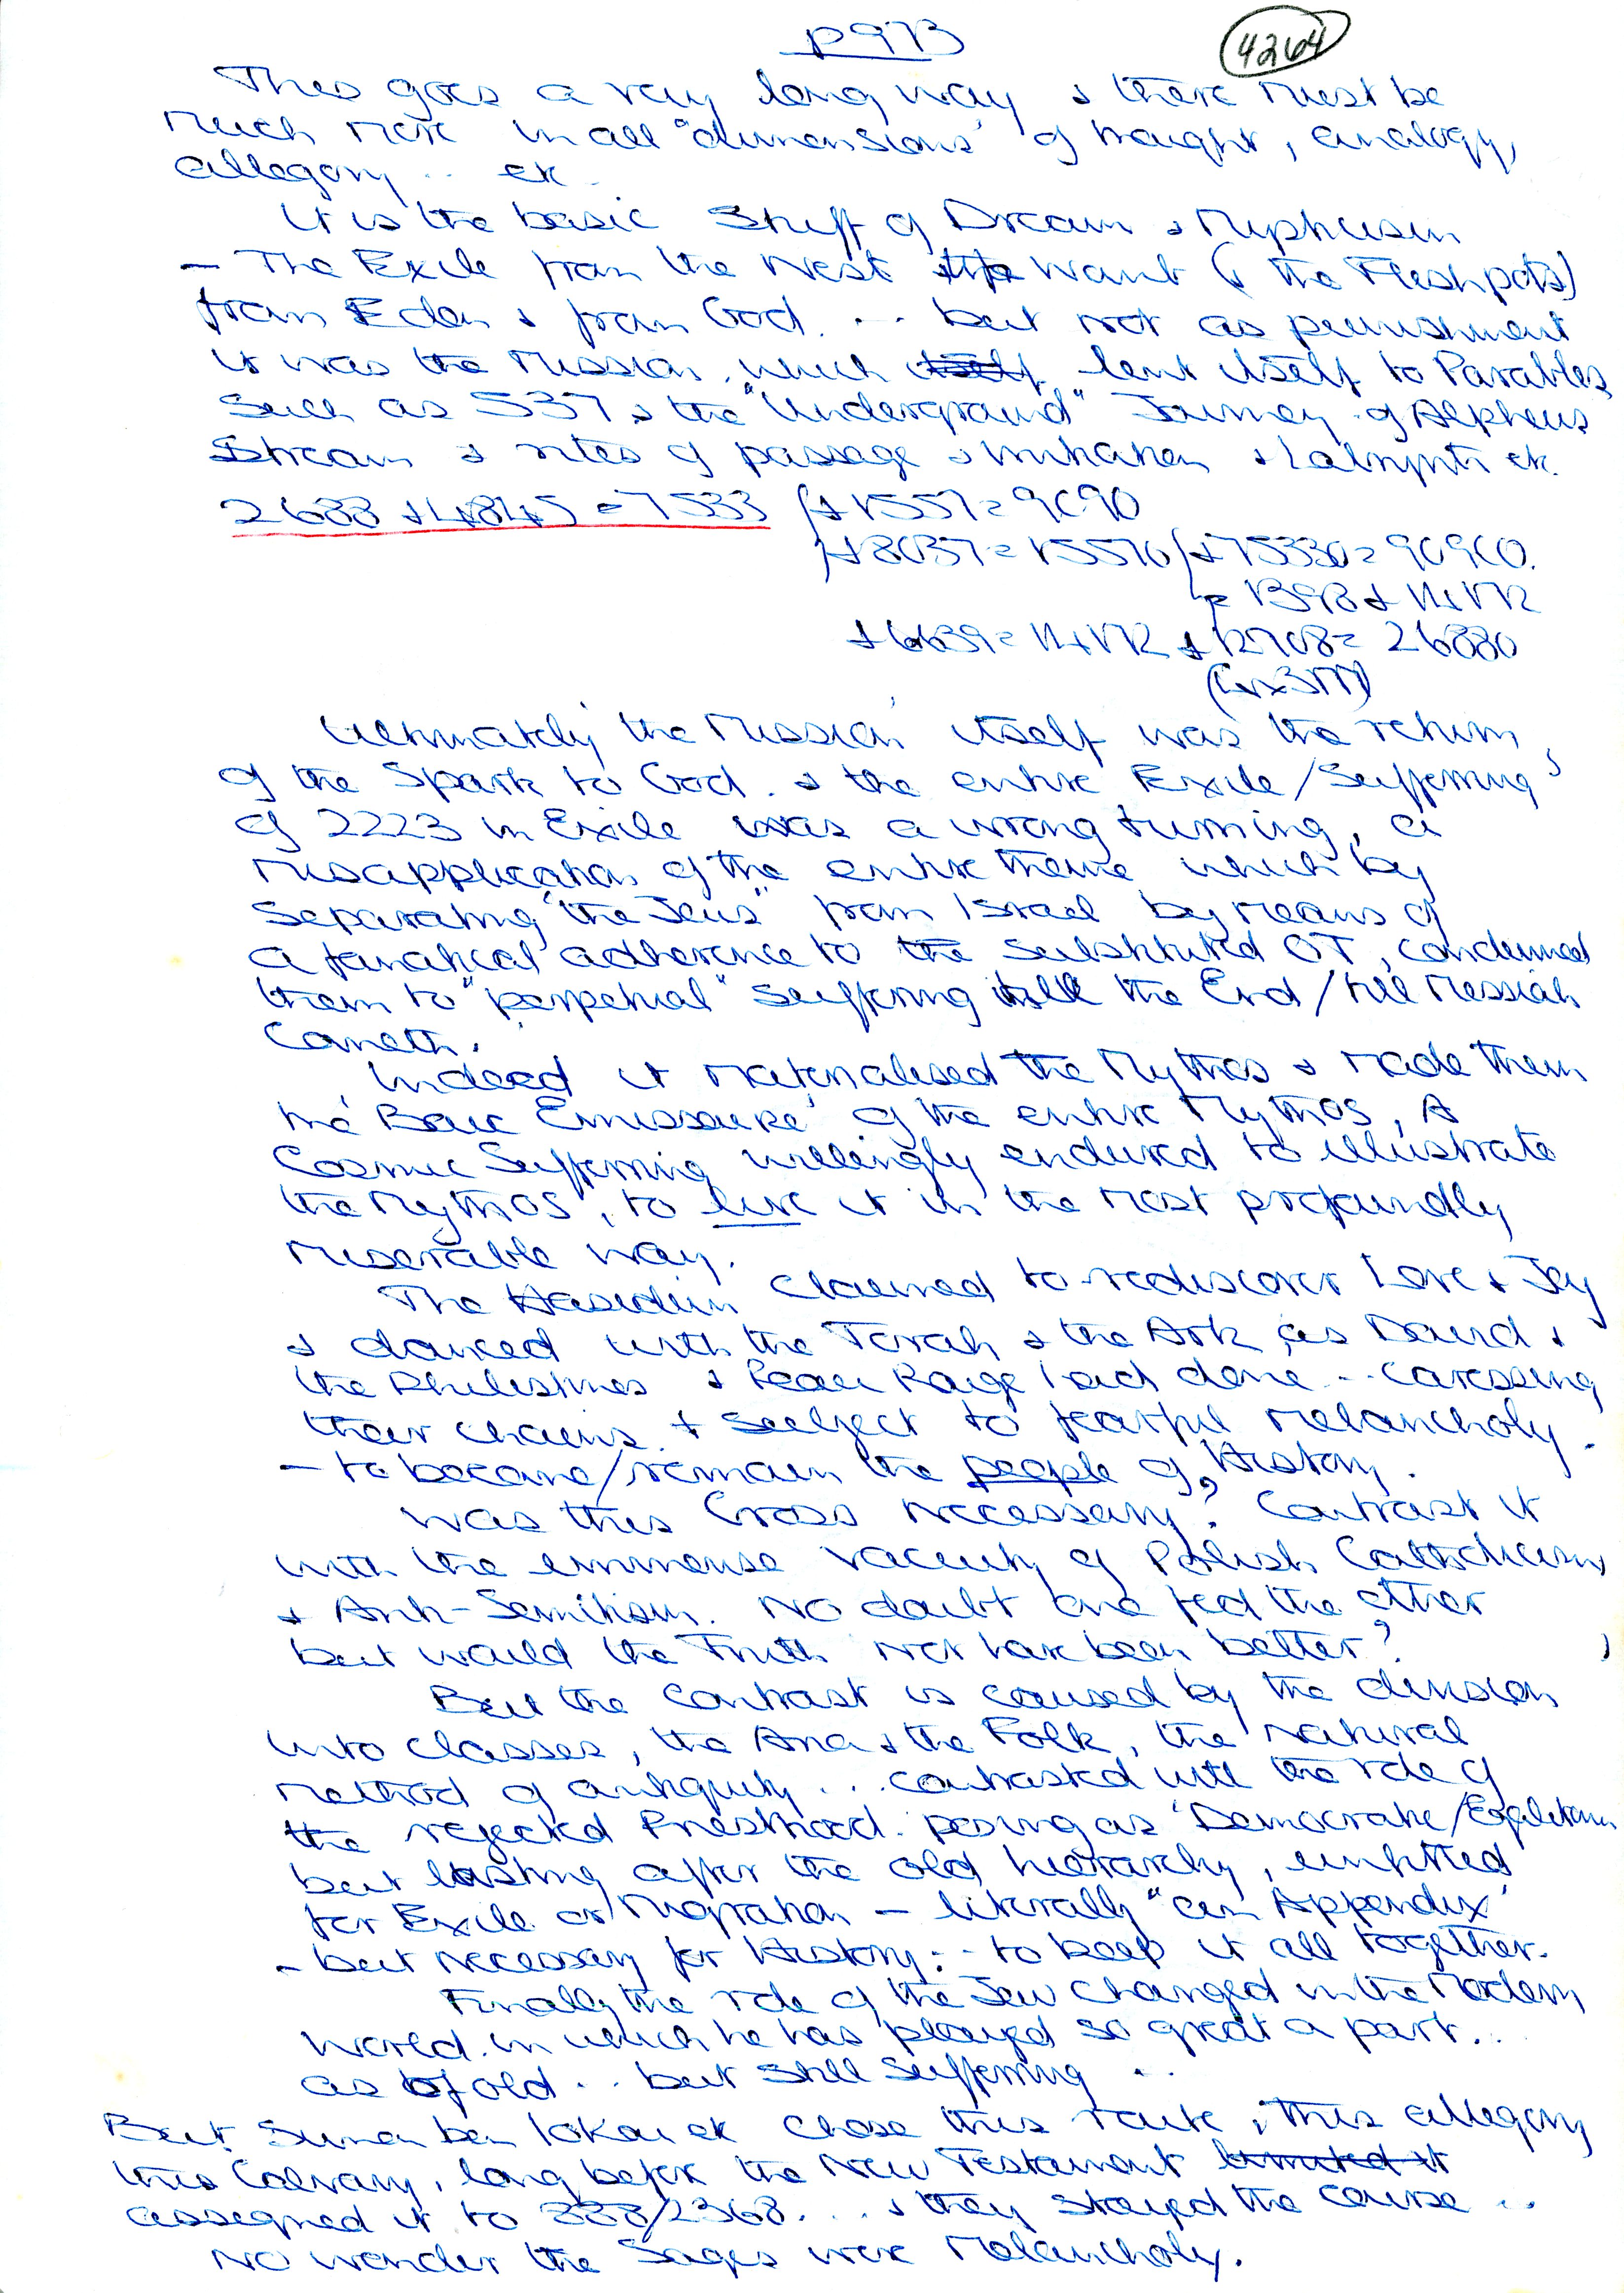 P97B
4264
This goes a very long way & there must be
much more in all "dimensions" of thought, analogy,
allegory .. etc
It is the basic Stuff of Dream &
– The Exile from the Nest Want (& the Fleshpots)
from Eden & from God. ... but not as punishment
it was the Mission, which itself lent itself to Parables
such as 537 & the "Underground" Journey of Alpheus
Stream & rites of passage & initiation & Labyrinth etc.
2688 + 4845 = 7533 + 1557 = 9090
+ 8037 = 15570 + 75330 = 90900.
= 1398 + 14172
+ 6639 = 14172 + 12708 = 26880
Ultimately the 'Mission' itself was the return
of the Spark to God. & the entire Exile/Suffering
of 2223 in Exile was a wrong turning, a
misapplication of the entire theme which by
separating "the Jews" from Israel by means of
a fanatical adherence to the substituted OT, condemned
them to "perpetual" suffering till the End/till Messiah
Cometh.
Indeed it materialised the Mythos & made them
the 'Bouc Emissaire' of the entire Mythos, A
Cosmic Suffering willingly endured to illustrate
the Mythos, to live it in the most profoundly
miserable way.
The Hasidim claimed to rediscover Love & Joy
& danced with the Torah & the Ark, as David &
the Philistines & had done ... caressing
their chains & subject to fearful Melancholy.
– to become/remain the people of History.
Was this Cross necessary? Contrast it
with the immense vacuity of Polish Catholicism
& Anti-Semitism. No doubt one fed the other
but would the Truth not have been better?
But the contrast is caused by the division
into classes, the & the Folk, the natural
method of antiquity ... contrasted with the role of
the rejected Priesthood. posing as 'Democratic/Egalitarian
but lusting after the old hierarchy, unfitted
for Exile or Migration – literally "an Appendix"
– but necessary for History .. to keep it all together.
Finally the role of the Jew changed in the Modern
World. in which he has played so great a part...
as of old .. but still suffering ..
But Simon ben Iokai etc chose this route, this allegory
this Calvary, long before the New Testament
assigned it to 888/2368. .. & they stayed the course ..
No wonder the Sages were Melancholy.